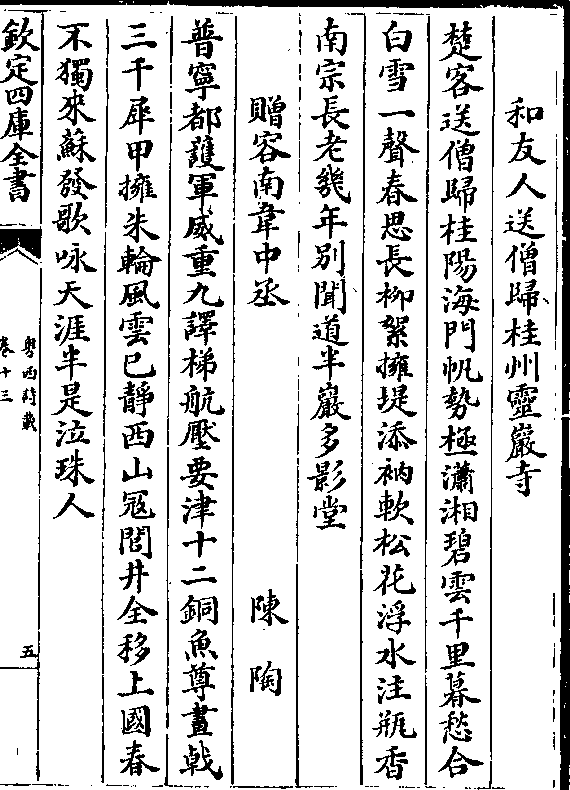 和友人送僧歸桂州靈巖寺
楚客送僧歸桂陽海門帆勢極瀟湘碧雲千里暮愁合
白雪一聲春思長柳絮擁堤添衲軟松花浮水注瓶香
南宗長老幾年別聞道半巖多影堂
贈容南韋中丞 陳陶
普寧都護軍威重九譯梯航壓要津十二銅魚尊畫戟
三千犀甲擁朱輪風雲已靜西山寇閭井全移上國春
不獨來蘇發歌咏天涯半是泣珠人
欽定四庫全書
粵西詩載
卷十三
五